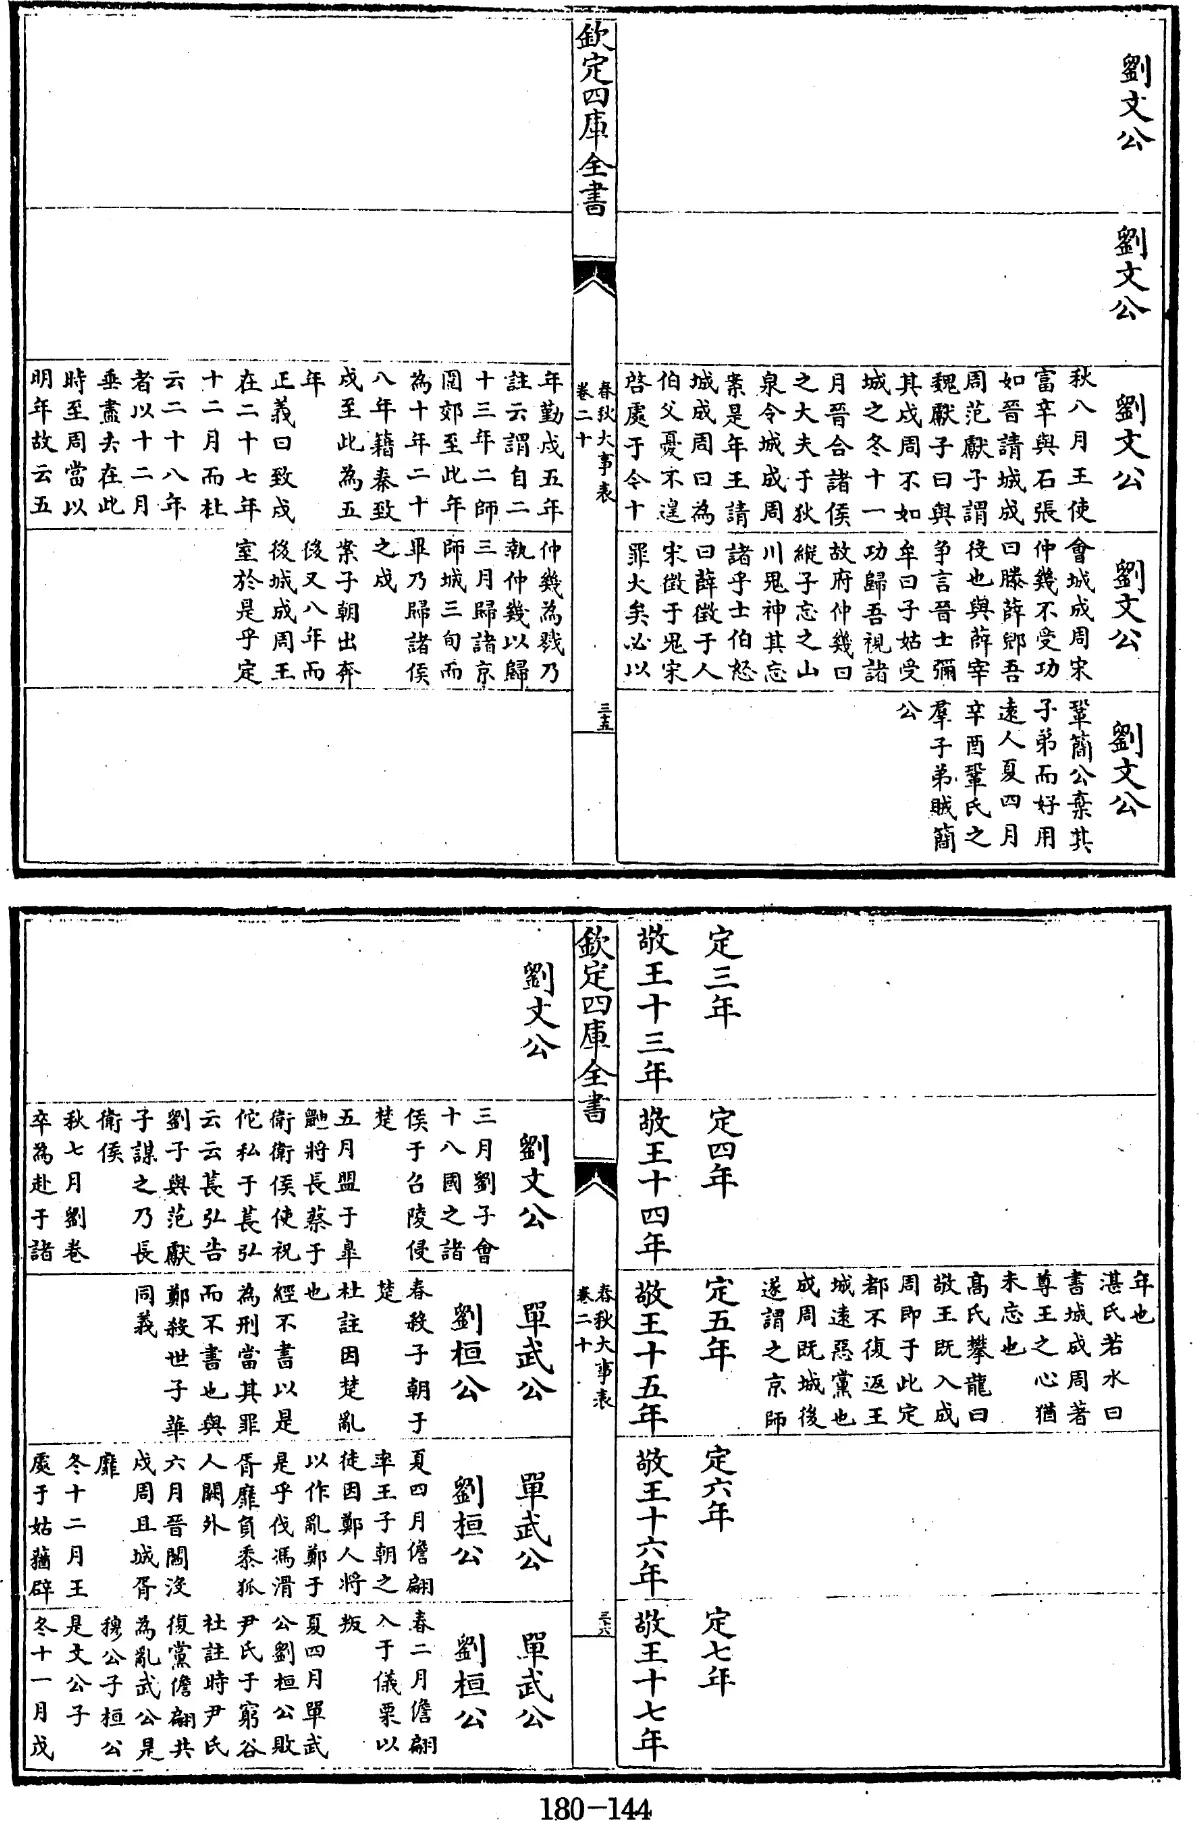 劉文公
劉文公
劉文公
秋八月王使
富辛與石張
如晉請城成
周范獻子謂
魏獻子曰與
其戍周不如
城之冬十一
月晉合諸侯
之大夫于狄
泉令城成周
案是年王請
城成周曰為
伯父憂不遑
啓處于令十
劉文公
會城成周宋
仲幾不受功
曰滕薛郳吾
役也與薛宰
爭言晉士彌
牟曰子姑受
功歸吾視諸
故府仲幾曰
縱子忘之山
川鬼神其忘
諸乎士伯怒
曰薛徵于人
宋徵于鬼宋
罪大矣必以
劉文公
鞏簡公棄其
子弟而好用
遠人夏四月
辛酉鞏氏之
羣子弟賊簡
公
欽定四庫全書
春秋大事表
卷二十
三五
年勤戍五年
註云謂自二
十三年二師
圍郊至此年
為十年二十
八年籍秦致
戍至此為五
年
正義曰致戍
在二十七年
十二月而杜
云二十八年
者以十二月
垂盡去在此
時至周當以
明年故云五
仲幾為戮乃
執仲幾以歸
三月歸諸京
師城三旬而
畢乃歸諸侯
之戍
案子朝出奔
後又八年而
後城成周王
室於是乎定
年也
湛氏若水曰
書城成周著
尊王之心猶
未忘也
高氏攀龍曰
敬王既入成
周即于此定
都不復返王
城遠惡黨也
成周既城後
遂謂之京師
定三年
敬王十三年
定四年
敬王十四年
定五年
敬王十五年
定六年
敬王十六年
定七年
敬王十七年
欽定四庫全書
春秋大事表
卷二十
三六
劉文公
劉文公
三月劉子會
十八國之諸
侯于召陵侵
楚
五月盟于臯
鼬將長蔡于
衛衛侯使祝
佗私于萇弘
云云萇弘告
劉子與范獻
子謀之乃長
衛侯
秋七月劉卷
卒為赴于諸
單武公
劉桓公
春殺子朝于
楚
杜註因楚亂
也
經不書以是
為刑當其罪
而不書也與
鄭殺世子華
同義
單武公
劉桓公
夏四月儋翩
率王子朝之
徒因鄭人將
以作亂鄭于
是乎伐馮滑
胥靡負黍狐
人闕外
六月晉閻沒
戍周且城胥
靡
冬十二月王
處于姑蕕辟
單武公
劉桓公
春二月儋翩
入于儀栗以
叛
夏四月單武
公劉桓公敗
尹氏于窮谷
杜註時尹氏
復黨儋翩共
為亂武公是
穆公子桓公
是文公子
冬十一月戊
180-144